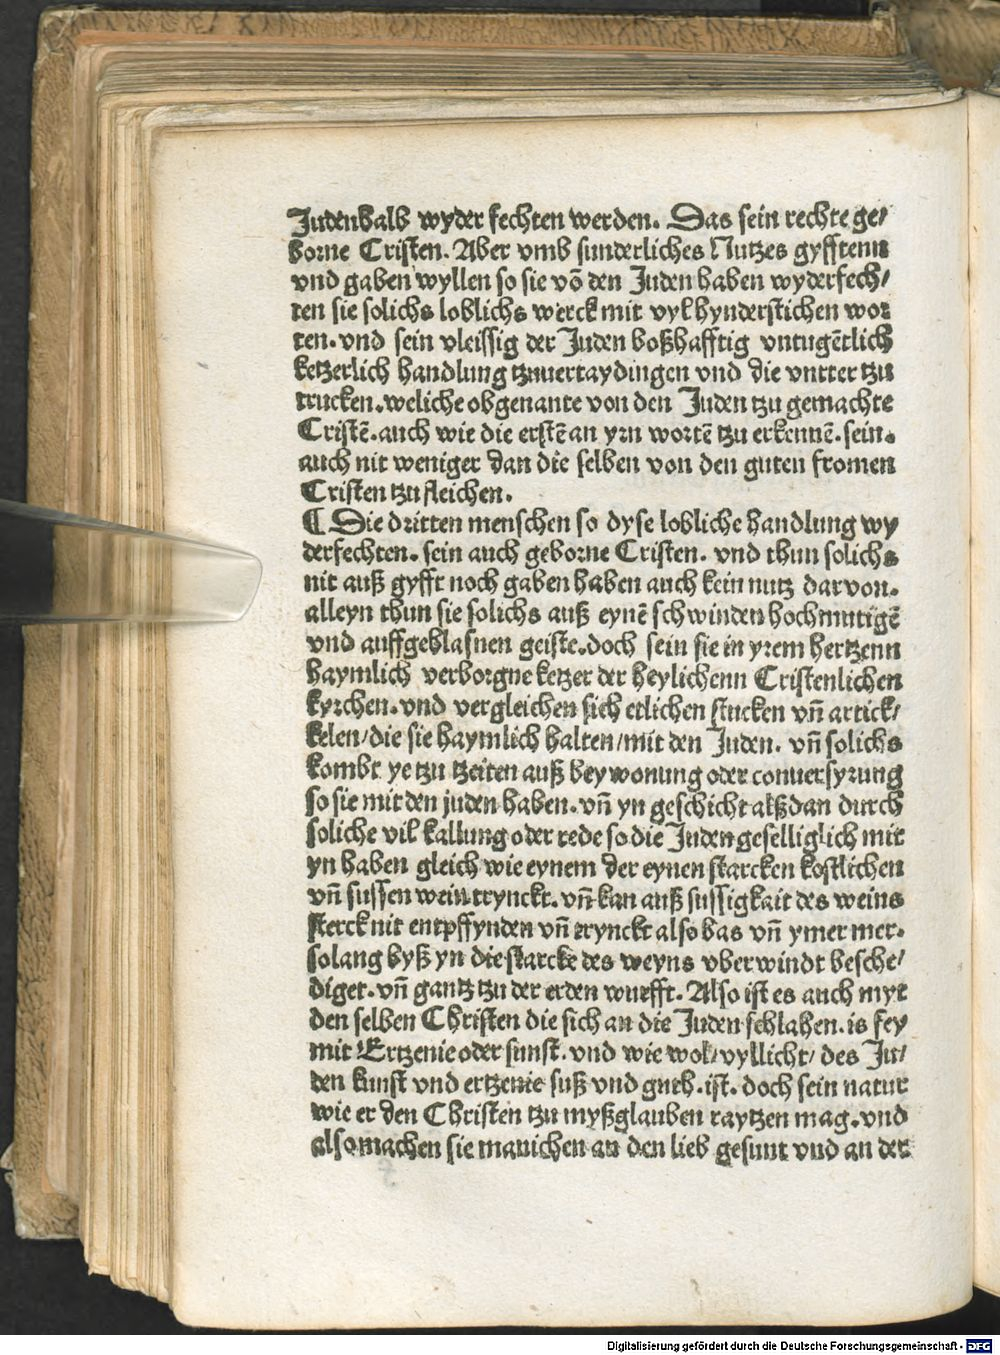 Judenhalb wyder fechten werden. Das sein rechte ge/
borne Cristen. Aber vmb sunderliches Nutzes gyfftenn
vnd gaben wyllen so sie võ den Juden haben wyderfech/
ten sie solichs loblichs werck mit vyl hynderstichen wor
ten. vnd sein vleissig der Juden boßhafftig vntugẽtlich
ketzerlich handlung tzuuertaydingen vnd die vntter tzu
trucken. weliche obgenante von den Juden tzu gemachte
Cristẽ. auch wie die erstẽ an yrn wortẽ tzu erkennẽ. sein.
auch nit weniger dan die selben von den guten fromen
Cristen tzu fleichen.
¶ Die dritten menschen so dyse lobliche handlung wy
derfechten. sein auch geborne Cristen. vnd thun solichs
nit auß gyfft noch gaben haben auch kein nutz darvon.
alleyn thun sie solichs auß eynẽ schwinden hochmutigẽ
vnd auffgeblasnen geiste. doch sein sie in yrem hertzenn
haymlich verborgne ketzer der heylichenn Cristenlichen
kyrchen. vnd vergleichen sich etlichen stucken vñ artick/
kelen/die sie haymlich halten/mit den Juden. vñ solichs
kombt ye tzu tzeiten auß beywonung oder conuersyrung
so sie mit den juden haben. vñ yn geschicht alßdan durch
soliche vil kallung oder rede so die Juden geselliglich mit
yn haben gleich wie eynem der eynen starcken kostlichen
vñ sussen wein trynckt. vñ kan auß sussigkait des weins
sterck nit entpffynden vñ trynckt also bas vñ ymer mer.
solang byß yn die starcke des weyns vberwindt besche/
diget. vñ gantz tzu der erden wurfft. Also ist es auch myt
den selben Christen die sich an die Juden schlahen. is sey
mit Ertzenie oder sunst. vnd wie wol/vyllicht/ des Ju/
den kunst vnd ertzenie suß vnd guth. ist. doch sein natur
wie er den Christen tzu myßglauben raytzen mag. vnd
also machen sie manichen an den lieb gesunt vnd an der
Digitalisierung gefördert durch die Deutsche Forschungsgemeinschaft - DFG